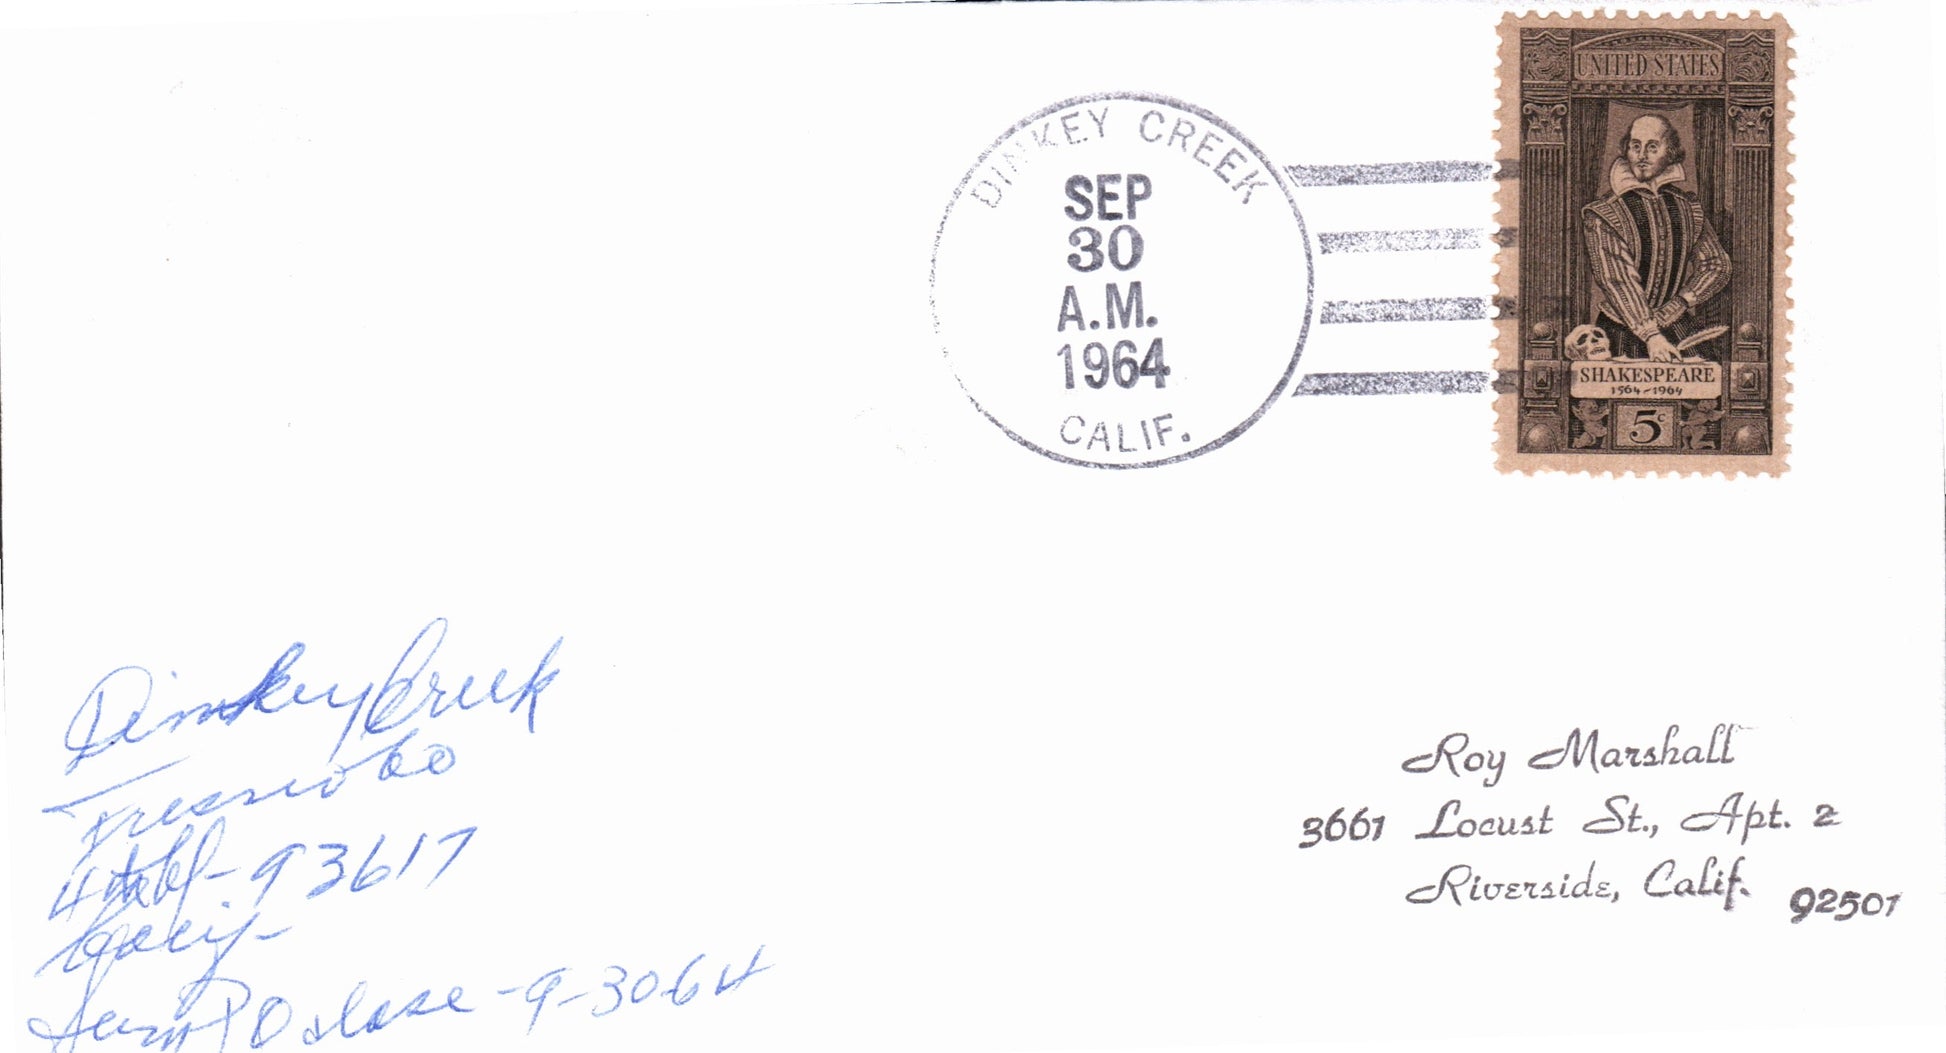 DINKEY CREEK
SEP
30
A.M.
1964
CALIF.
UNITED STATES
SHAKESPEARE
1564-1964
5c
Dinkey Creek
Fresno Co
93617
Calif-
P O close - 9-30-64
Roy Marshall
3661 Locust St., Apt. 2
Riverside, Calif. 92501